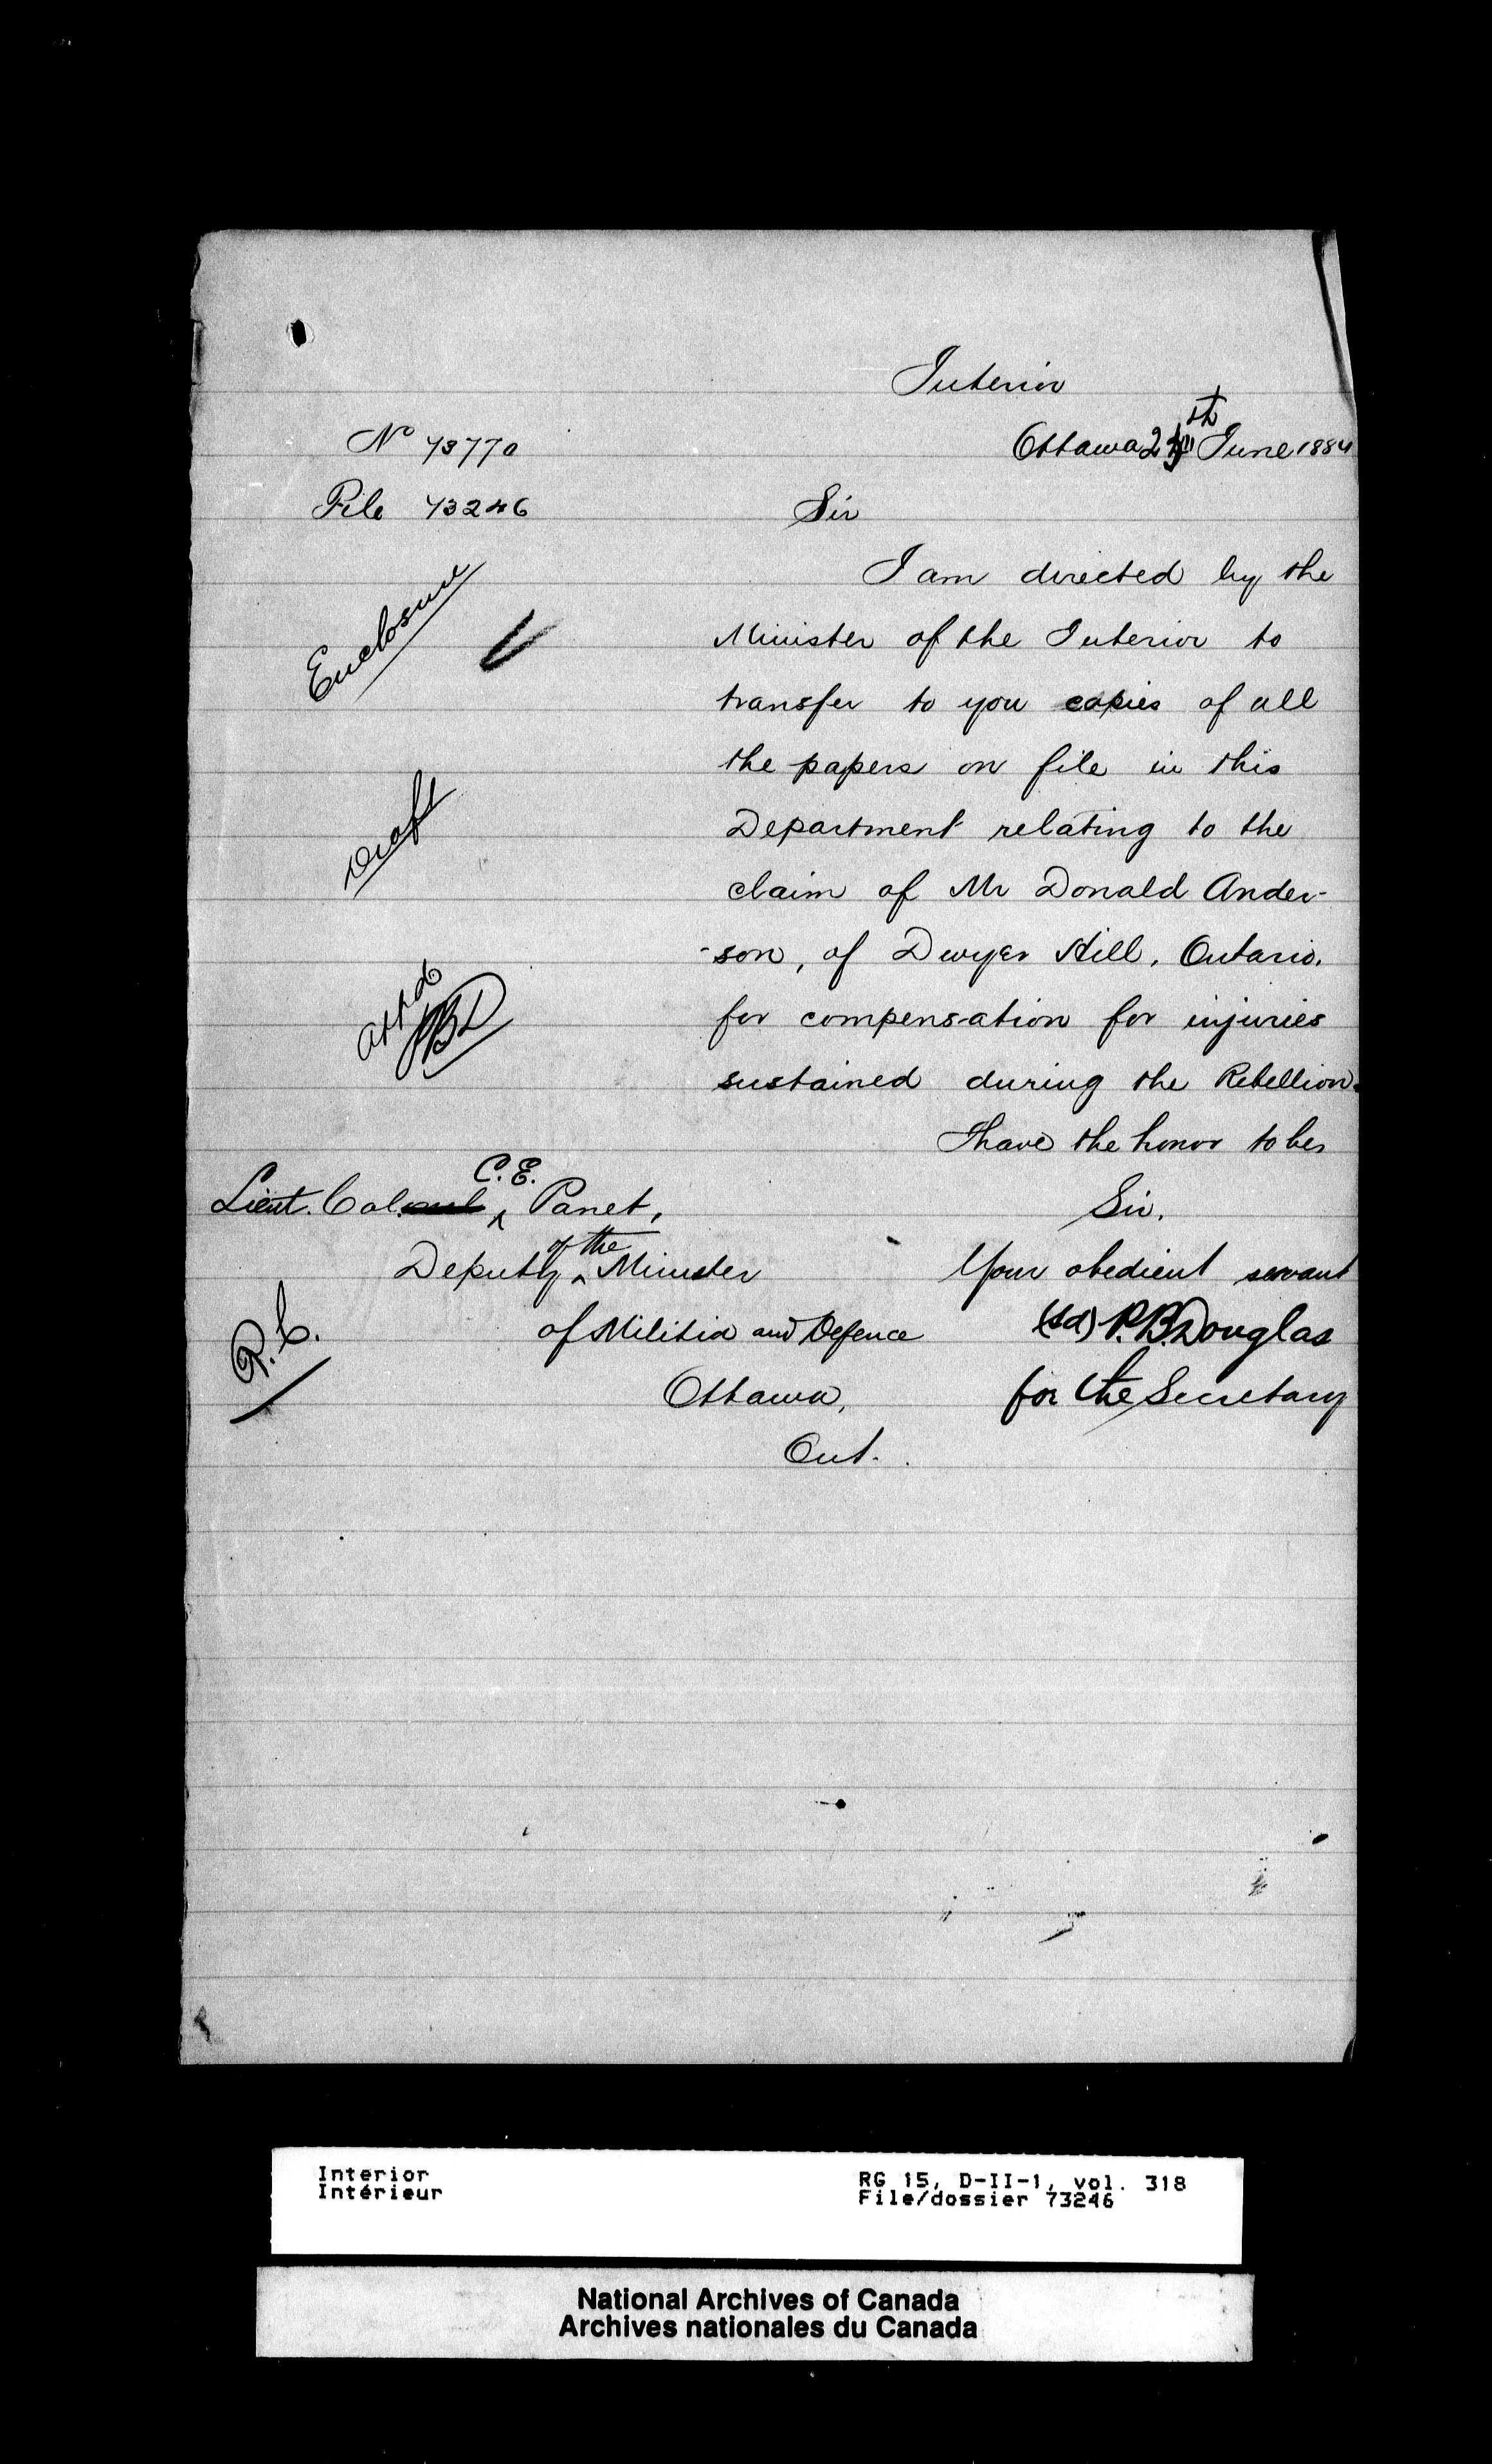 Interior
Ottawa 2 th June 1884
No 73770
File 73246
Sir
Enclosure
I am directed by the
Minister of the Interior to
transfer to you copies of all
the papers on file in this
Draft
Department relating to the
claim of Mr Donald Ander-
-son, of Dwyer Hill, Ontario.
Appd
PBD
for compensation for injuries
sustained during the Rebellion.
I have the honor to be,
Sir.
Your obedient servant
(sd) P. B. Douglas
for the Secretary
Lieut. Col. C.E. Panet,
Deputy of the Minister
of Militia and Defence
Ottawa,
Ont.
P.C.
Interior
Intérieur
RG 15, D-II-1, vol. 318
File/dossier 73246
National Archives of Canada
Archives nationales du Canada